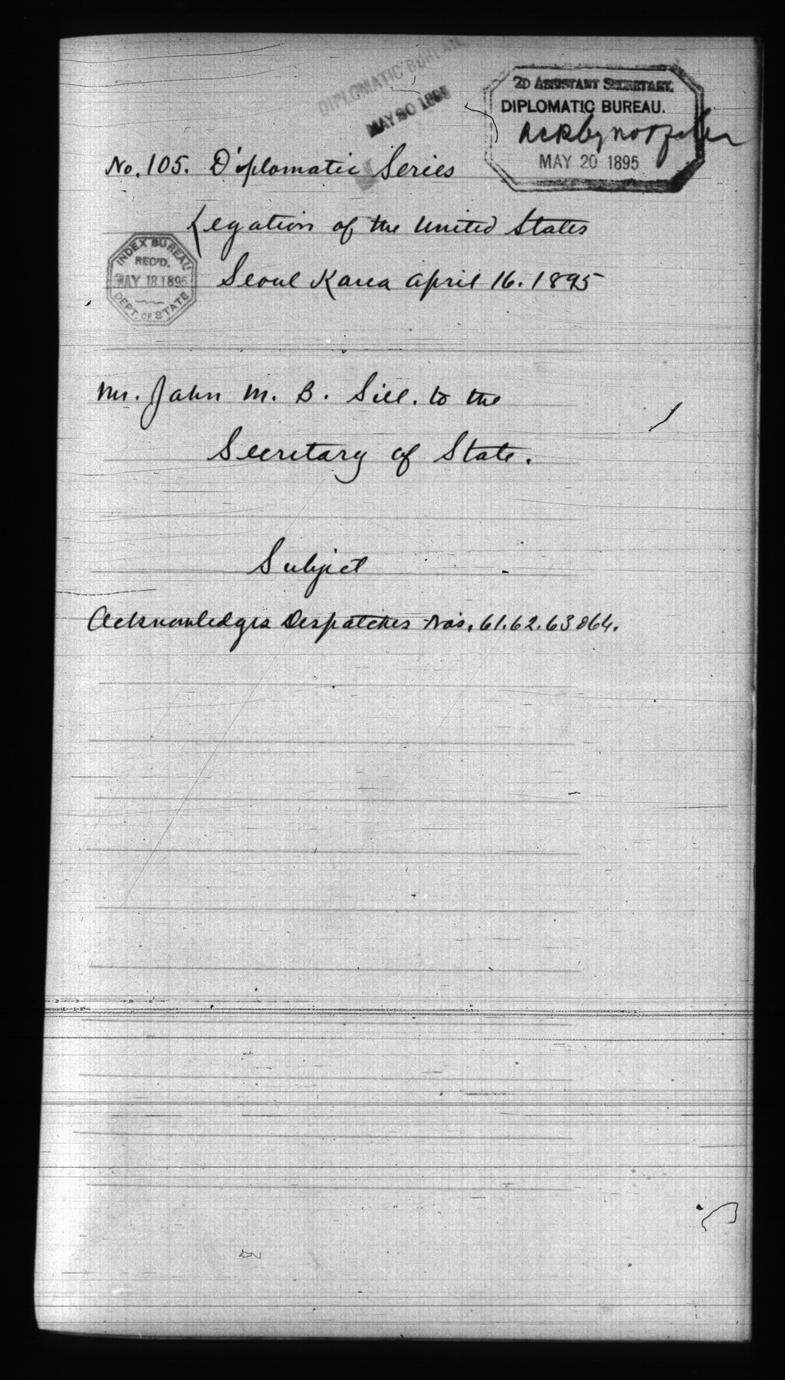 DIPLOMATIC BUREAU
MAY 20 1895
2D ASSISTANT SECRETARY.
DIPLOMATIC BUREAU.
MAY 20 1895
No. 105. Diplomatic Series
Legation of the United States
INDEX BUREAU
REC'D.
MAY 18 1895
DEPT. OF STATE
Seoul Korea April 16. 1895
Mr. John M. B. Sill. to the
Secretary of State.
Subject
Acknowledges Despatches Nos. 61.62.63 & 64.